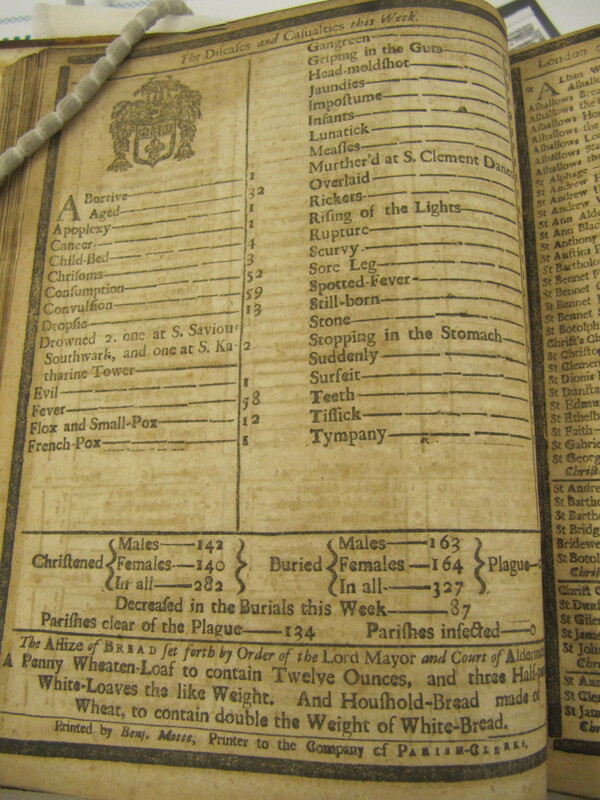 The Diſeaſes and Caſualties this Week.
Abortive 1
Aged 32
Apoplexy 1
Cancer 1
Child-Bed 4
Chriſoms 3
Conſumption 52
Convulſion 59
Dropſie 13
Drowned 2. one at S. Saviour
Southwark, and one at S. Ka- 2
tharine Tower
Evil 1
Fever 58
Flox and Small-Pox 12
French-Pox
Gangreen
Griping in the Guts
Head-moldſhot
Jaundies
Impoſtume
Infants
Lunatick
Meaſles
Murther'd at S. Clement Danes
Overlaid
Rickets
Riſing of the Lights
Rupture
Scurvy
Sore Leg
Spotted-Fever
Still-born
Stone
Stopping in the Stomach
Suddenly
Surfeit
Teeth
Tiſſick
Tympany
Chriſtened
Males—142
Females—140
In all—282
Buried
Males—163
Females—164
In all—327
Plague—0
Decreaſed in the Burials this Week—87
Pariſhes clear of the Plague—134 Pariſhes infected—0
The Aſſize of BREAD ſet forth by Order of the Lord Mayor and Court of Aldermen
A Penny Wheaten-Loaf to contain Twelve Ounces, and three Half-
White-Loaves the like Weight. And Houſhold-Bread made of
Wheat, to contain double the Weight of White-Bread.
Printed by Benj. Motte, Printer to the Company of PARISH-CLERKS.
London
Alban W
Alhallows
Alhallows
Alhallows
Alhallows
Alhallows
St Alphage
St Andrew H
St Andrew
St Andrew
St Ann Alde
St Ann Blac
St Anthony
St Auſtins
St Bartholo
St Bennet
St Bennet
St Bennet
St Bennet
St Botolph
Chriſt's
St Chriſto
St Clemen
St Dionis
St Dunſta
St Edmu
St Ethelb
St Faith
St Gabrie
St Georg
Chriſt
St Andre
St Barth
St Barth
St Bridg
Bridewe
St Botol
Chriſt
Chriſt C
St Dunſ
St Giles
St Jame
St John
St Ann
St Clem
St Jam